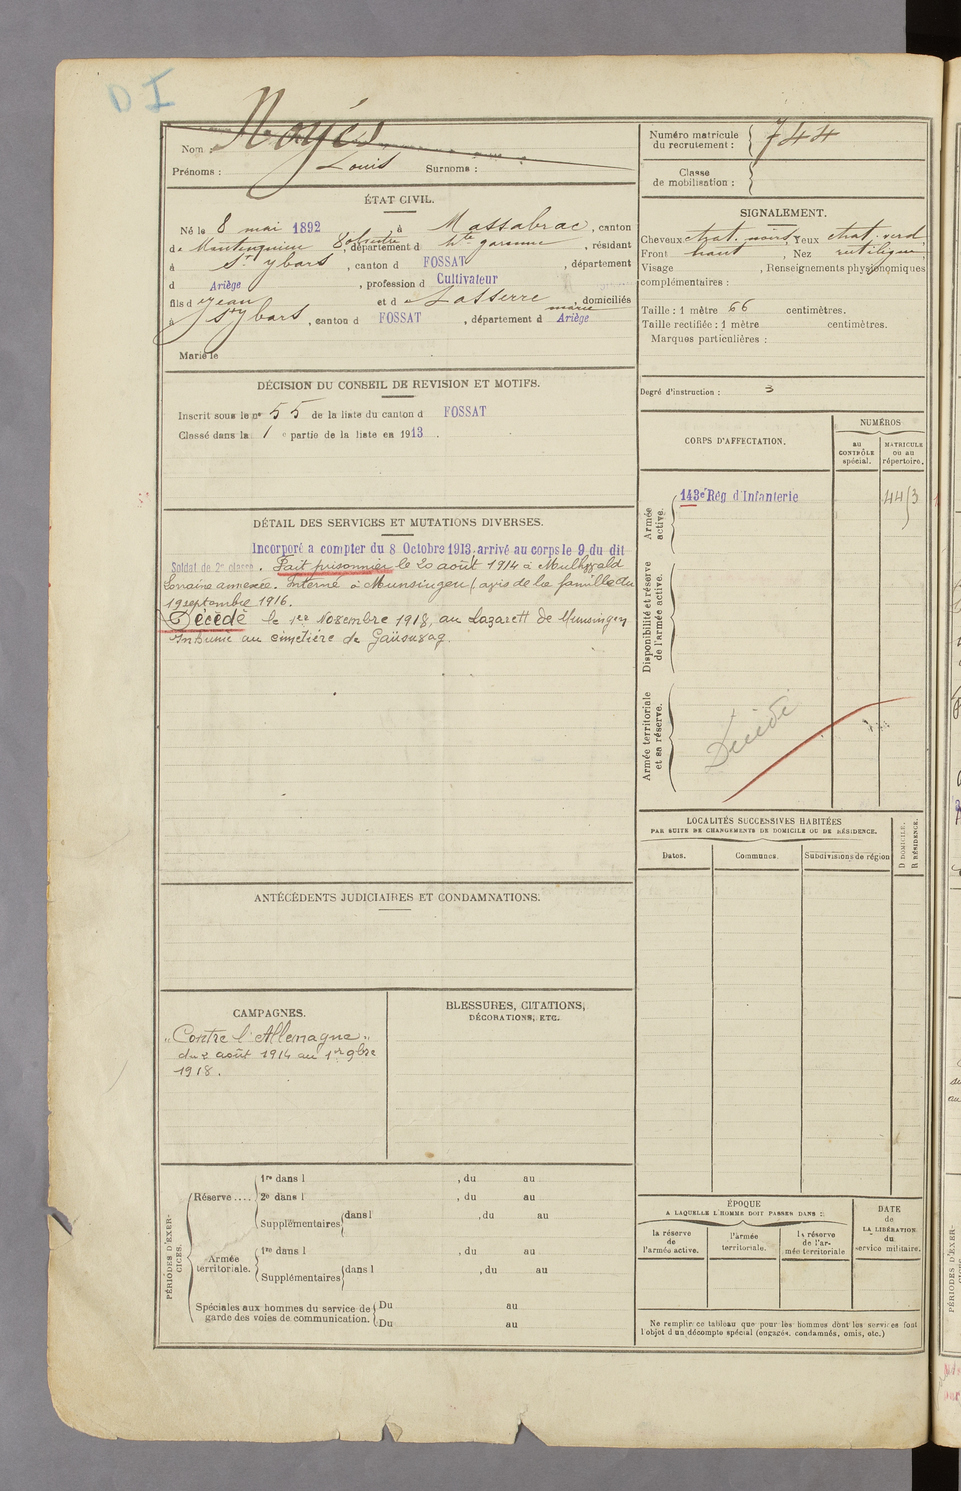 D I
Nom : Noyès
Prénoms : Louis Surnoms :
ÉTAT CIVIL.
Né le 8 mai 1892 à Massabrac, canton
de Montesquieu Volvestre, département d Hte garonne, résidant
à St Ybars, canton d FOSSAT, département
d Ariège, profession d Cultivateur
fils d Jean et d Lasserre marie, domiciliés
à St Ybars, canton d FOSSAT, département d Ariège
Marié le
DÉCISION DU CONSEIL DE REVISION ET MOTIFS.
Inscrit sous le nº 55 de la liste du canton d FOSSAT
Classé dans la 1 e partie de la liste en 1913.
DÉTAIL DES SERVICES ET MUTATIONS DIVERSES.
Incorporé a compter du 8 Octobre 1913, arrivé au corps le 9 du dit
Soldat de 2e classe. Fait prisonnier le 20 août 1914 à
Lorraine annexée. Interné à Munsingen (avis de la famille du
19 septembre 1916.
Décédé le 1er Novembre 1918, au Lazarett de Munsingen
Inhumé au cimetière de
ANTÉCÉDENTS JUDICIAIRES ET CONDAMNATIONS.
CAMPAGNES.
"Contre l'Allemagne"
du 2 août 1914 au 1er 9bre
1918.
BLESSURES, CITATIONS,
DÉCORATIONS, ETC.
PÉRIODES D'EXER-
CICES.
Réserve .... 1re dans l , du au
2e dans l , du au
Supplémentaires dans l , du au
Armée territoriale. 1re dans l , du au
Supplémentaires dans l , du au
Spéciales aux hommes du service de Du au
garde des voies de communication. Du au
Numéro matricule
du recrutement : 744
Classe
de mobilisation :
SIGNALEMENT.
Cheveux chat. noirs, Yeux chat. verd
Front haut, Nez rectiligne
Visage , Renseignements physionomiques
complémentaires :
Taille : 1 mètre 66 centimètres.
Taille rectifiée : 1 mètre centimètres.
Marques particulières :
Degré d'instruction : 3
CORPS D'AFFECTATION.
NUMÉROS
au
CONTRÔLE
spécial.
MATRICULE
ou au
répertoire.
Armée
active.
143e Rég d'Infanterie
Disponibilité et réserve
de l'armée active.
Armée territoriale
et sa réserve.
Décédé
LOCALITÉS SUCCESSIVES HABITÉES
PAR SUITE DE CHANGEMENTS DE DOMICILE OU DE RÉSIDENCE.
Dates.
Communes.
Subdivisions de région
D DOMICILE.
R RÉSIDENCE.
ÉPOQUE
A LAQUELLE L'HOMME DOIT PASSER DANS :
la réserve
de
l'armée active.
l'armée
territoriale.
la réserve
de l'ar-
mée territoriale
DATE
de
LA LIBÉRATION
du
service militaire.
Ne remplir ce tableau que pour les hommes dont les services font
l'objet d'un décompte spécial (engagés, condamnés, omis, etc.)
PÉRIODES D'EXER-